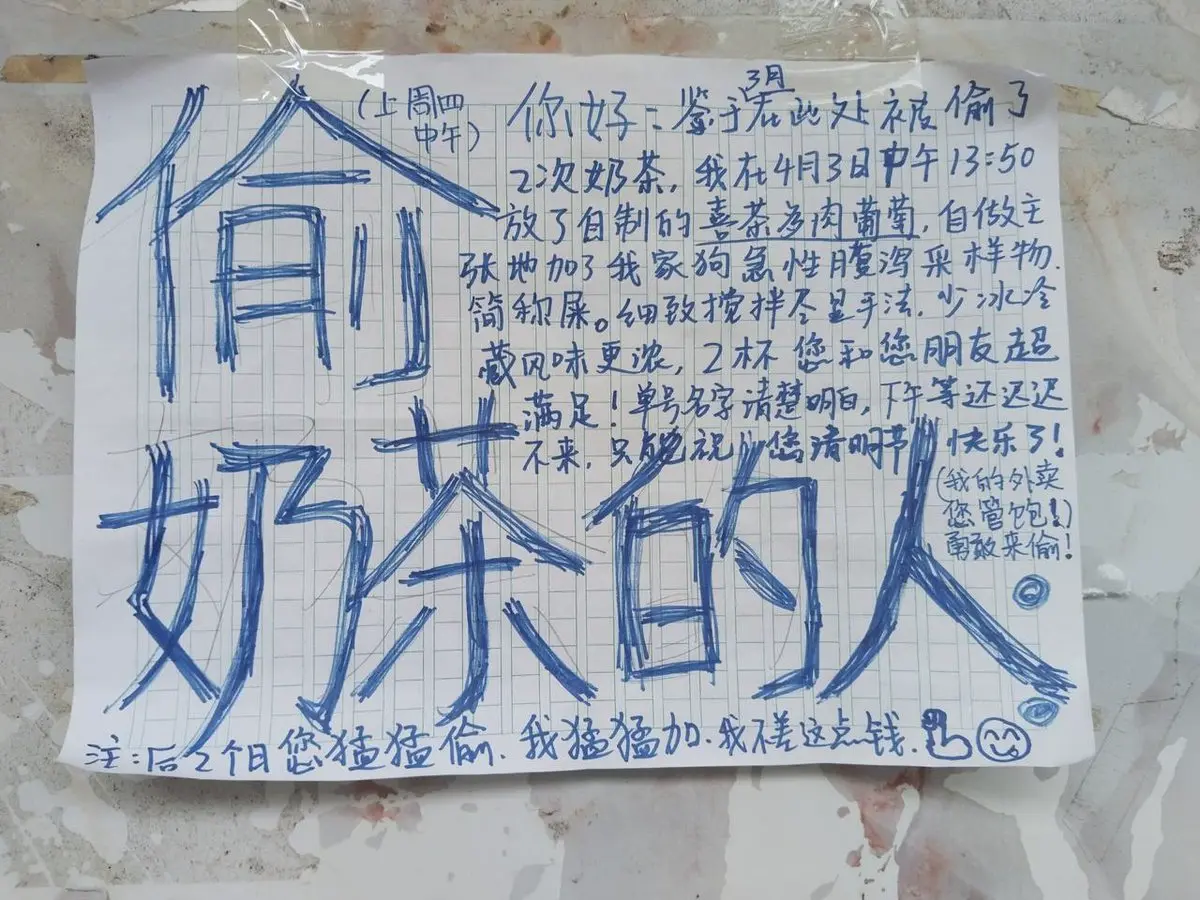 偷
奶茶的人：
(上周四
中午)
你好：鉴于3月在此处被偷了
2次奶茶，我在4月3日中午13:50
放了自制的喜茶多肉葡萄，自做主
张地加了我家狗急性腹泻采样物.
简称屎。细致搅拌尽显手法，少冰冷
藏风味更浓，2杯您和您朋友超
满足！单号名字清楚明白，下午等还迟迟
不来，只能祝您清明节快乐了！
(我的外卖
您管饱！)
勇敢来偷！
注：后2个月您猛猛偷.我猛猛加.我不差这点钱.